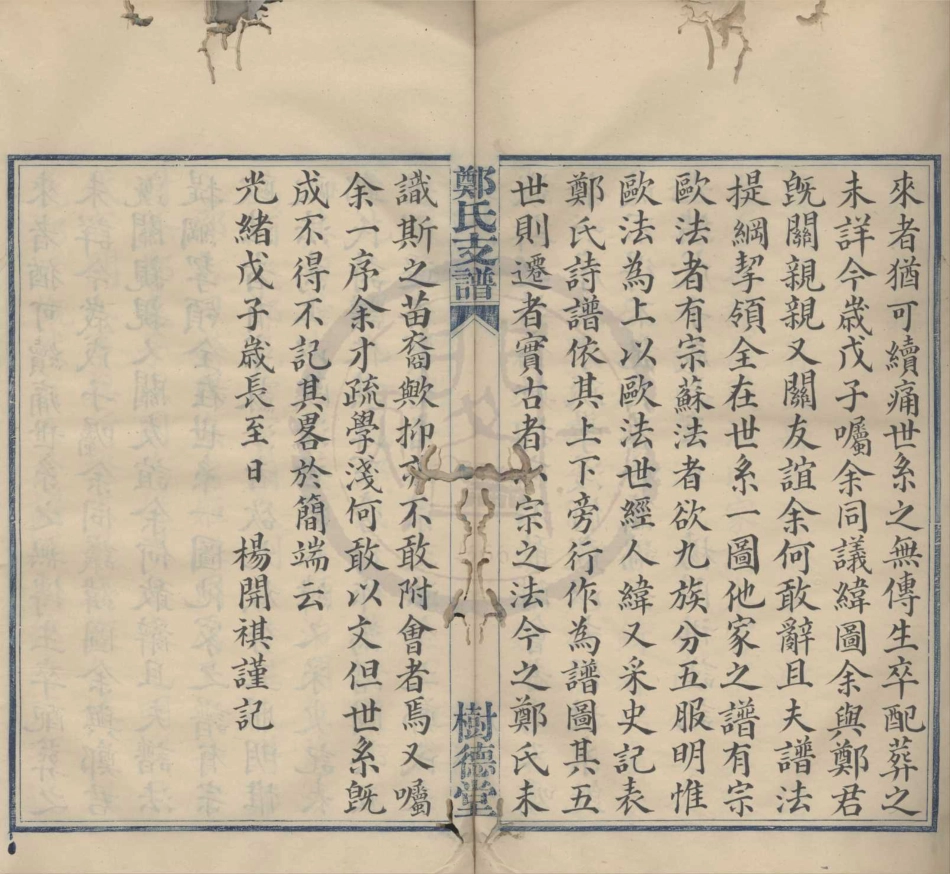 來者猶可續痛世系之無傳生卒配葬之
未詳今歲戊子囑余同議緯圖余與鄭君
旣關親親又關友誼余何敢辭且夫譜法
提綱挈領全在世系一圖他家之譜有宗
歐法者有宗蘇法者欲九族分五服明惟
歐法為上以歐法世經人緯又采史記表
鄭氏詩譜依其上下旁行作為譜圖其五
世則遷者實古者宗之法今之鄭氏未
鄭氏支譜
樹德堂
識斯之苗裔歟抑亦不敢附會者焉又囑
余一序余才疏學淺何敢以文但世系旣
成不得不記其畧於簡端云
光緒戊子歲長至日 楊開祺謹記